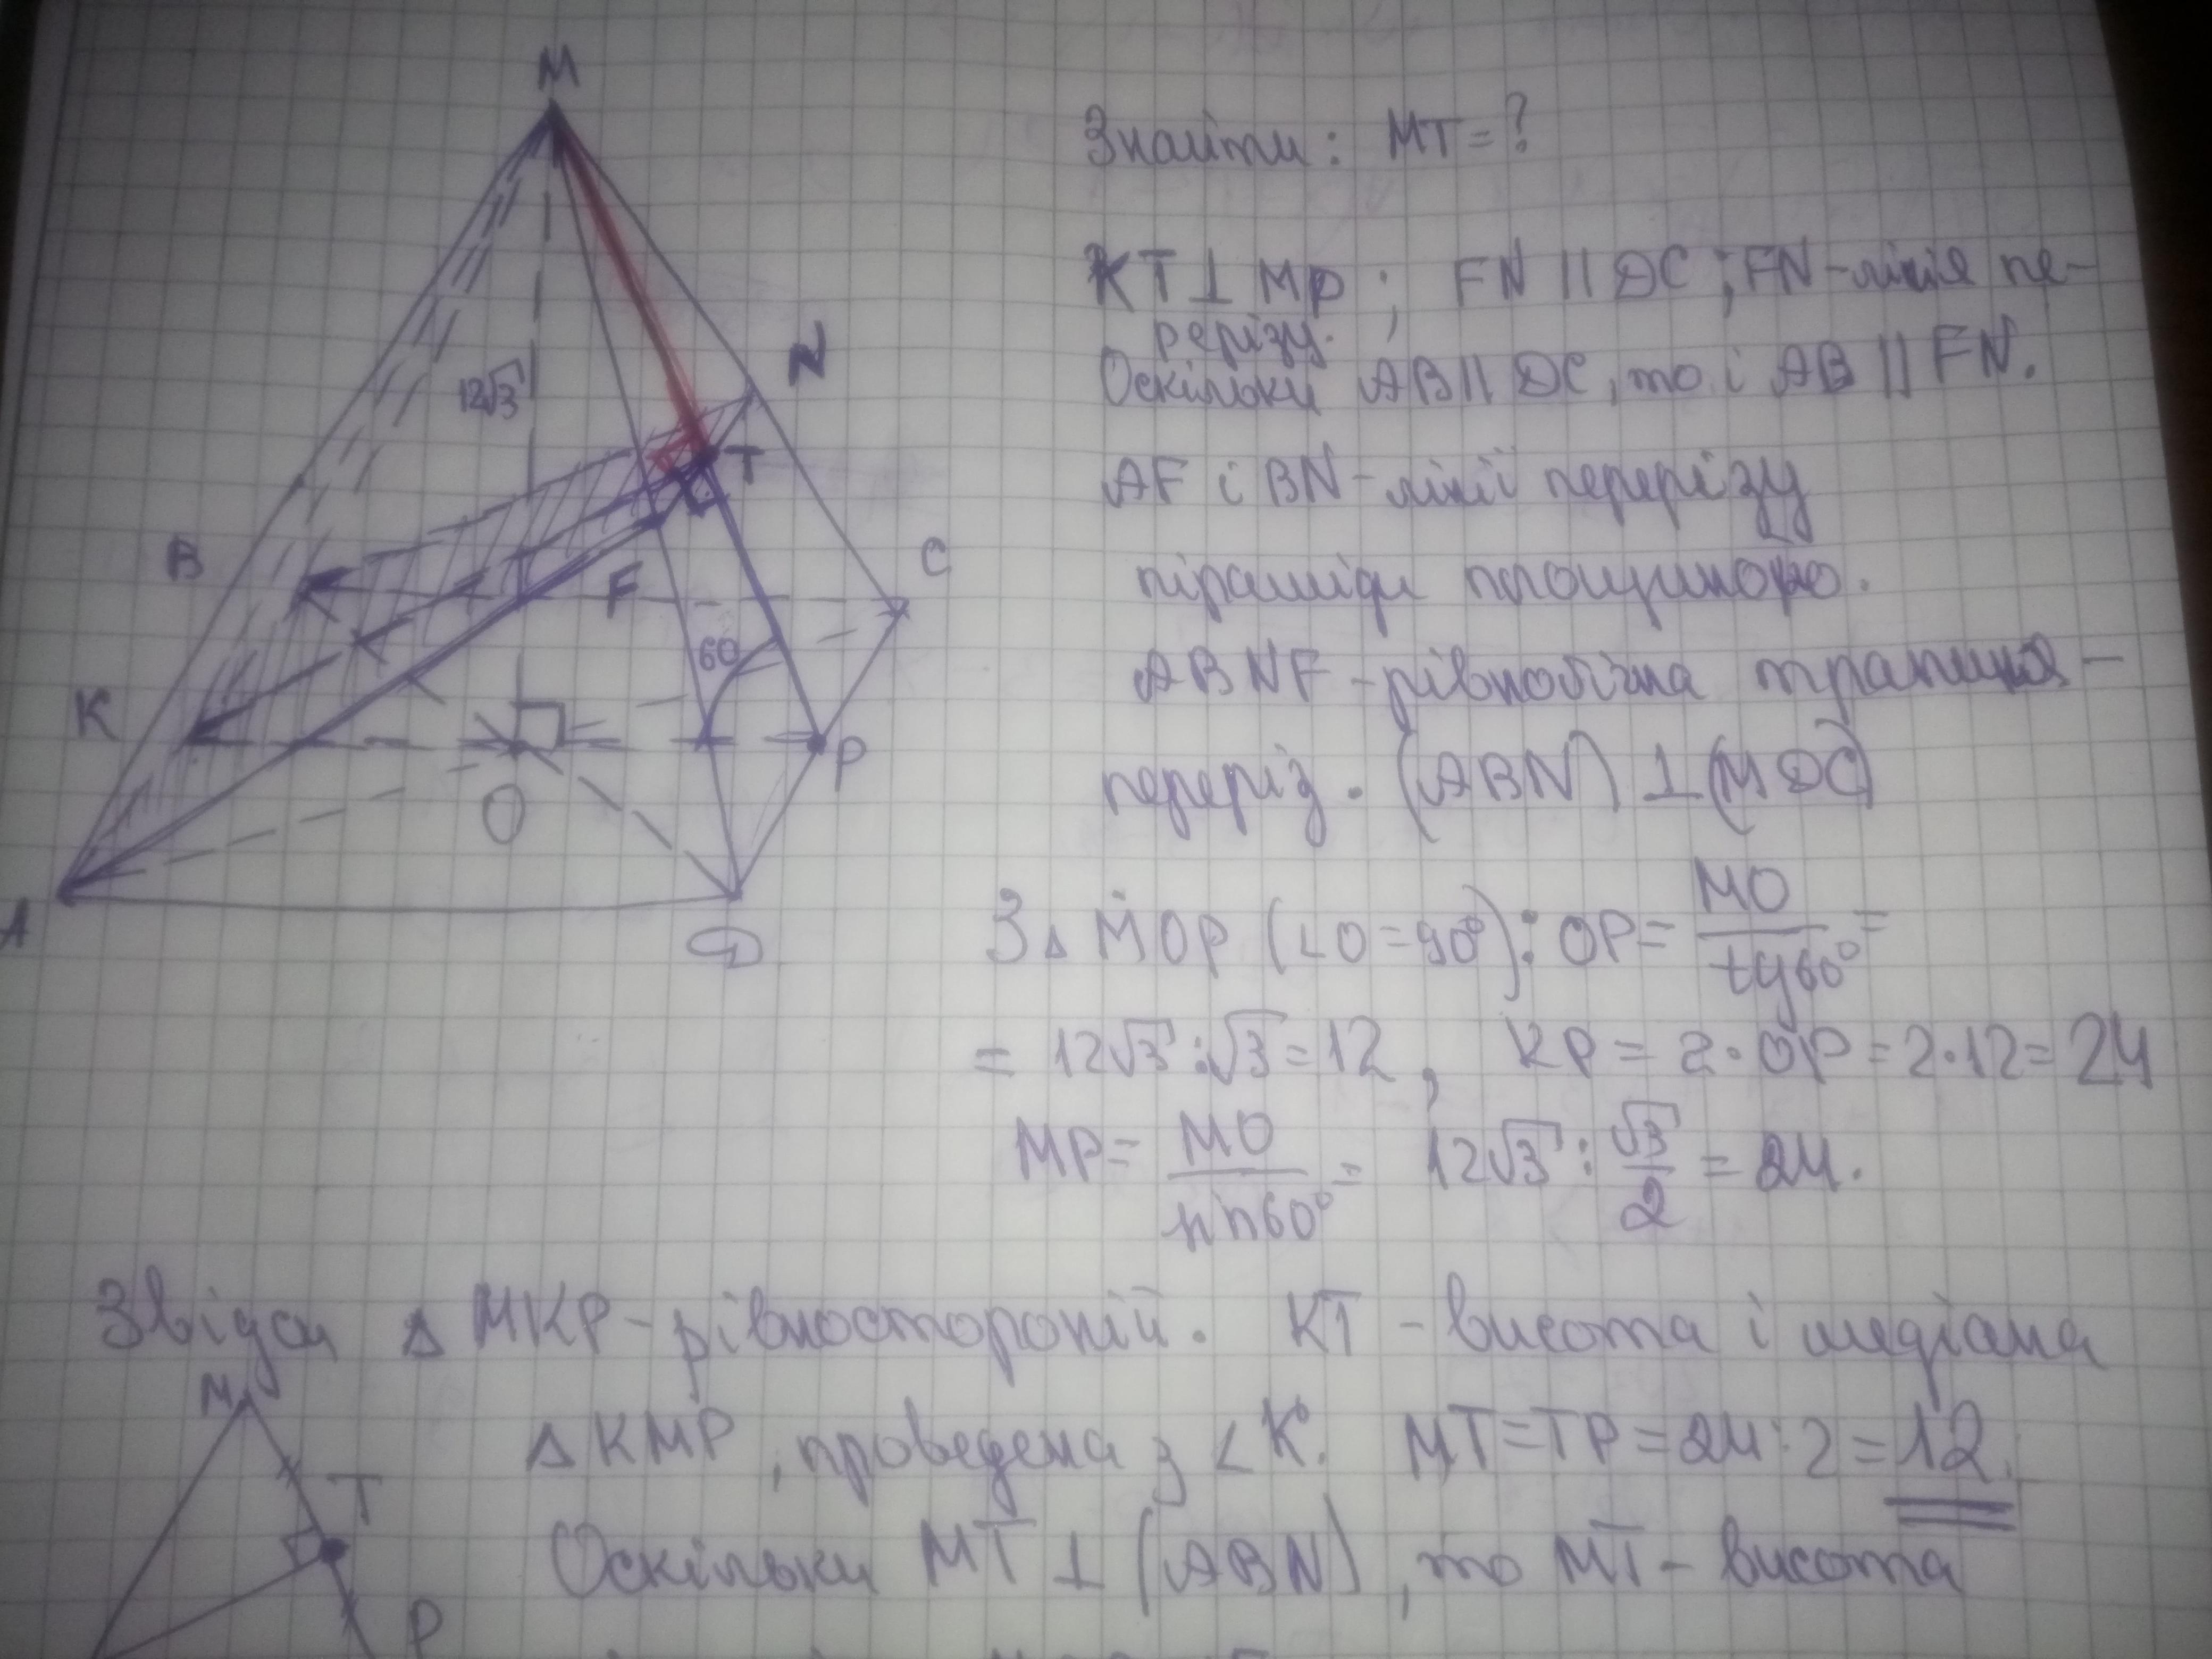 M
12√3
N
T
B
C
F
60
K
P
O
A
D
Знайти: MT = ?
KT ⊥ MP ; FN || DC ; FN - лінія пе-
рерізу.
Оскільки AB || DC, то і AB || FN.
AF і BN - лінії перерізу
піраміди площиною.
ABNF - рівнобічна трапеція -
переріз. (ABN) ⊥ (MDC)
З Δ MOP (∠O = 90°): OP = MO / tg60° =
= 12√3 : √3 = 12, KP = 2 · OP = 2 · 12 = 24
MP = MO / sin60° = 12√3 : √3/2 = 24.
Звідси Δ MKP - рівносторонній. KT - висота і медіана
Δ KMP, проведена з ∠K. MT = TP = 24 : 2 = 12.
Оскільки MT ⊥ (ABN), то MT - висота
M
T
P